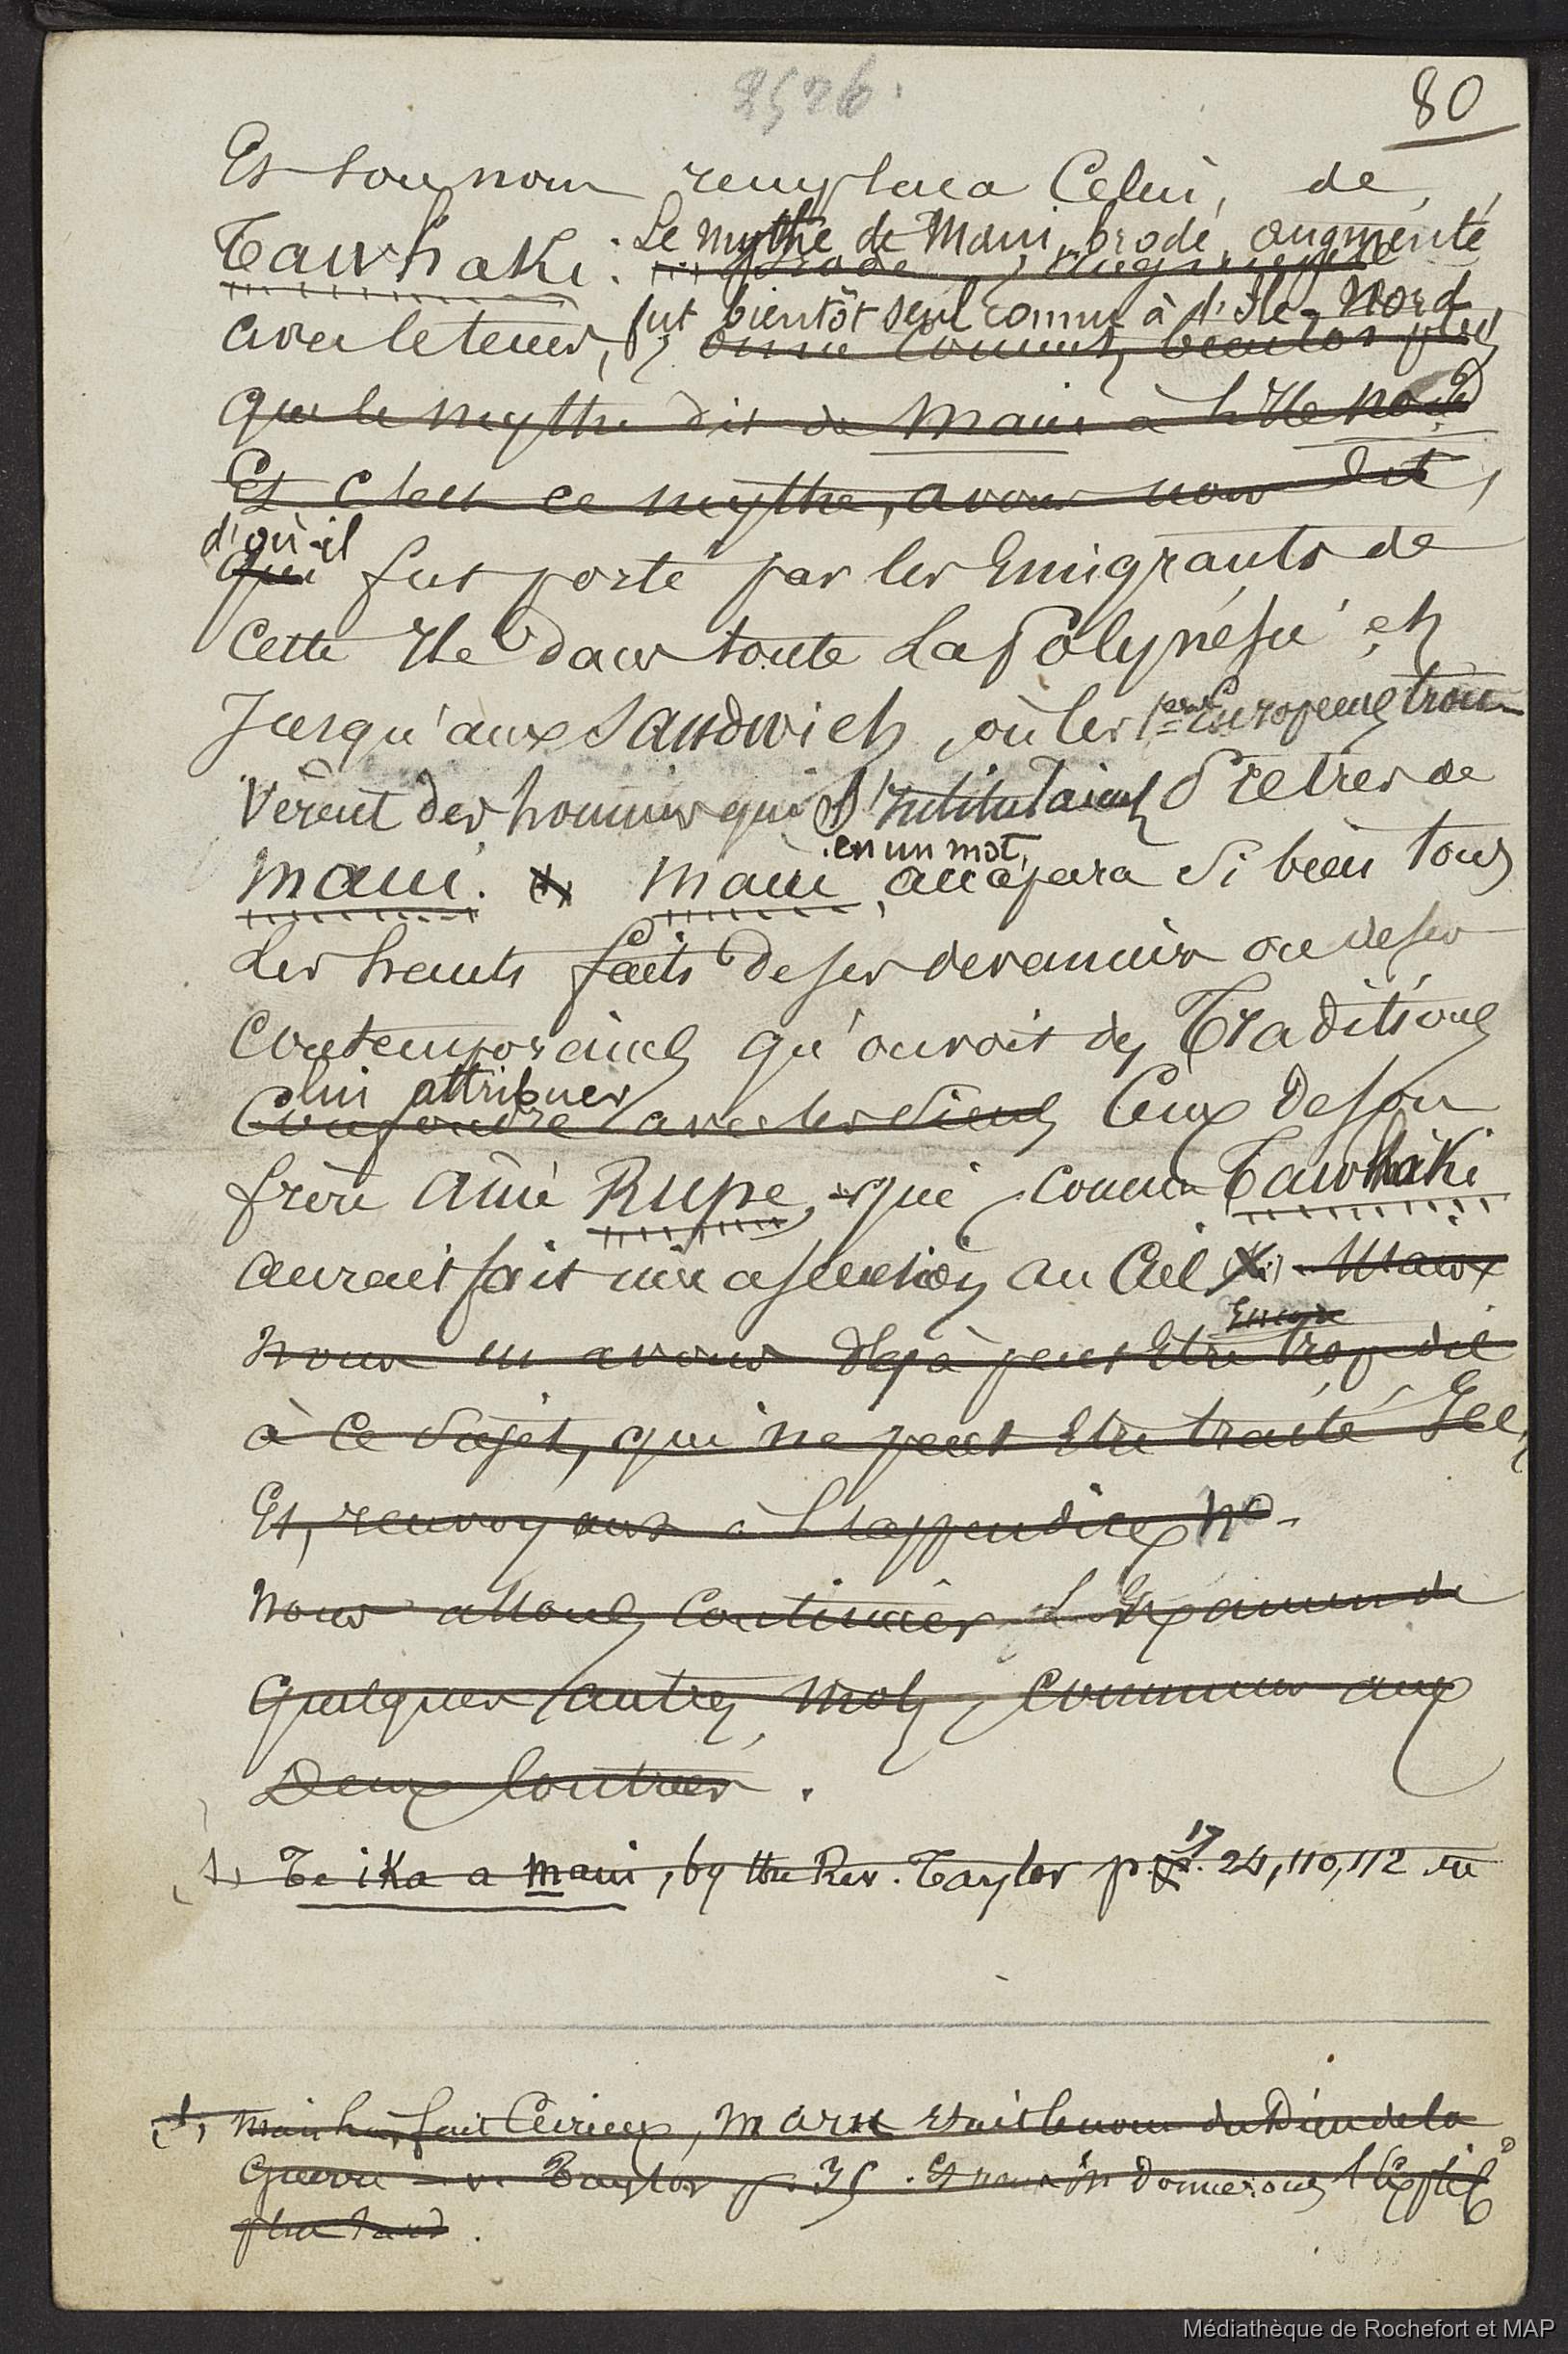 2526.
80
Et son nom remplaca Celui, de
Tawhaki. Le mythe de Maui, brodé, augmenté
brodé, augmenté
avec le temps, fut bientôt seul connu à l'Ile-Nord
connut, bientot plus
que le mythe dit de Maui à l'Ile Nord
Et c'est ce mythe, avons nous dit,
d'où il
qui fut porté par les Emigrants de
Cette Ile dans toute La Polynésie et
Jusqu'aux Sandwich, où les 1ers Européens trou-
vèrent des hommes qui S'Intitulaient Prêtres de
en un mot,
Maui. (1) Maui, accapara Si bien tous
Les hauts faits de ses devanciers ou de ses
Contemporains qu'on voit des Traditions
lui attribuer
Confondre avec les Siens Ceux de son
frère aîné Rupe, qui, comme Tawhaki
aurait fait une ascension au Ciel (1) Mais
Encore
nous en avons déjà peut Etre trop dit
à Ce Sujet, qui ne peut Etre traité Ici,
Et, renvoyant à L'appendice No-
nous allons Continuer L'Examen de
Quelques autres mots, Communs aux
Deux Contrées.
(1) Te ika a Maui, by the Rev. Taylor p. 17. 24, 110, 112
(1) Mais fait Curieux, Maru Etait le nom du Dieu de la
Guerre - v. Taylor p. 35. Et nous en donnerons l'Explic
plus tard.
Médiathèque de Rochefort et MAP